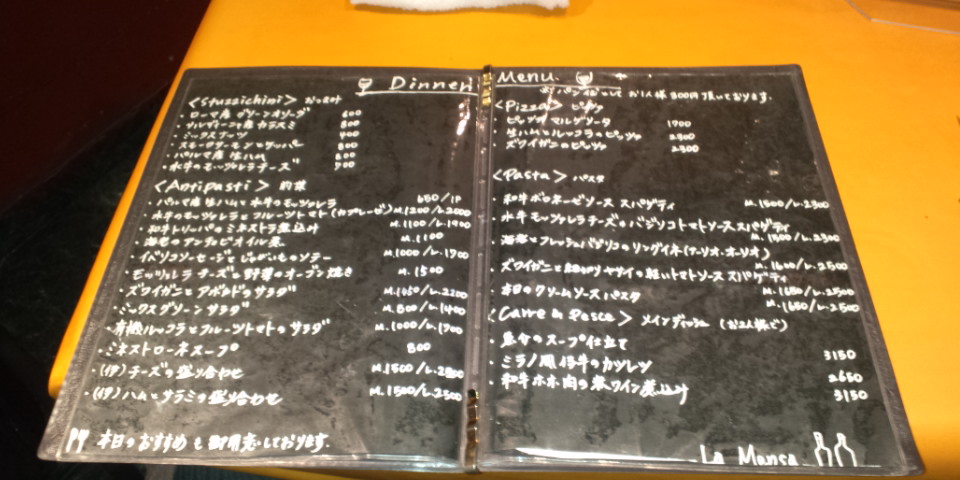 Dinner Menu.
お一人様300円頂いております。
<Stuzzichini> おつまみ
・ローマ産グリーンオリーブ 600
・サルディーニャ産カラスミ 800
・ミックスナッツ 400
・スモークサーモンとケッパー 800
・パルマ産生ハム 800
・水牛のモッツァレラチーズ 900
<Antipasti> 前菜
・パルマ産生ハムと水牛のモッツァレラ 650/1P
・水牛のモッツァレラとフルーツトマト(カプレーゼ) M.1200/L.2000
・和牛トリッパのミネストラ煮込み M.1100/L.1900
・海老のアンチョビオイル煮 M.1100
・イベリコソーセージとじゃがいものソテー M.1000/L.1700
・モッツァレラチーズと野菜のオーブン焼き M.1500
・ズワイガニとアボカドのサラダ M.1350/L.2200
・ミックスグリーンサラダ M.800/L.1400
・有機ルッコラとフルーツトマトのサラダ M.1000/L.1700
・ミネストローネスープ 800
・(伊)チーズの盛り合わせ M.1500/L.2800
・(伊)ハムとサラミの盛り合わせ M.1500/L.2500
本日のおすすめも御用意しております。
<Pizza> ピッツァ
・ピッツァ マルゲリータ 1700
・生ハムとルッコラのピッツァ 2300
・ズワイガニのピッツァ 2300
<Pasta> パスタ
・和牛ボロネーゼソース スパゲティ M.1500/L.2300
・水牛モッツァレラチーズのバジリコトマトソース スパゲティ M.1500/L.2300
・海老とフレッシュバジリコのリングイネ(アーリオ・オーリオ) M.1600/L.2500
・ズワイガニと の軽いトマトソース スパゲティ M.1650/L.2500
・本日のクリームソース パスタ M.1650/L.2500
<Carne & Pesce> メインディッシュ (お2人様で)
・魚介のスープ仕立て 3150
・ミラノ風仔牛のカツレツ 2650
・和牛ホホ肉の赤ワイン煮込み 3150
La Mensa